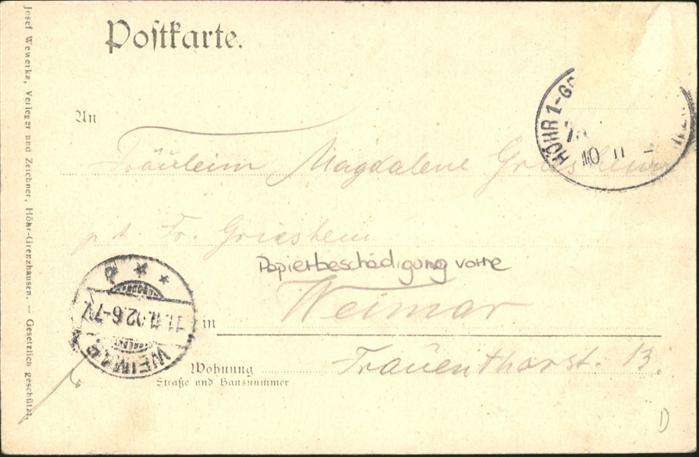 Postkarte.
An
HÖHR 1-G
10 11
Fräulein Magdalene Griesheim
p. d. Fr. Griesheim
Papierbeschädigung vorne
in Weimar
WEIMAR
11.11.02.6-7V
Wohnung Frauenthorst. 13.
Straße und Hausnummer
D
Josef Wewerka, Verleger und Zeichner, Höhr-Grenzhausen. — Gesetzlich geschützt.